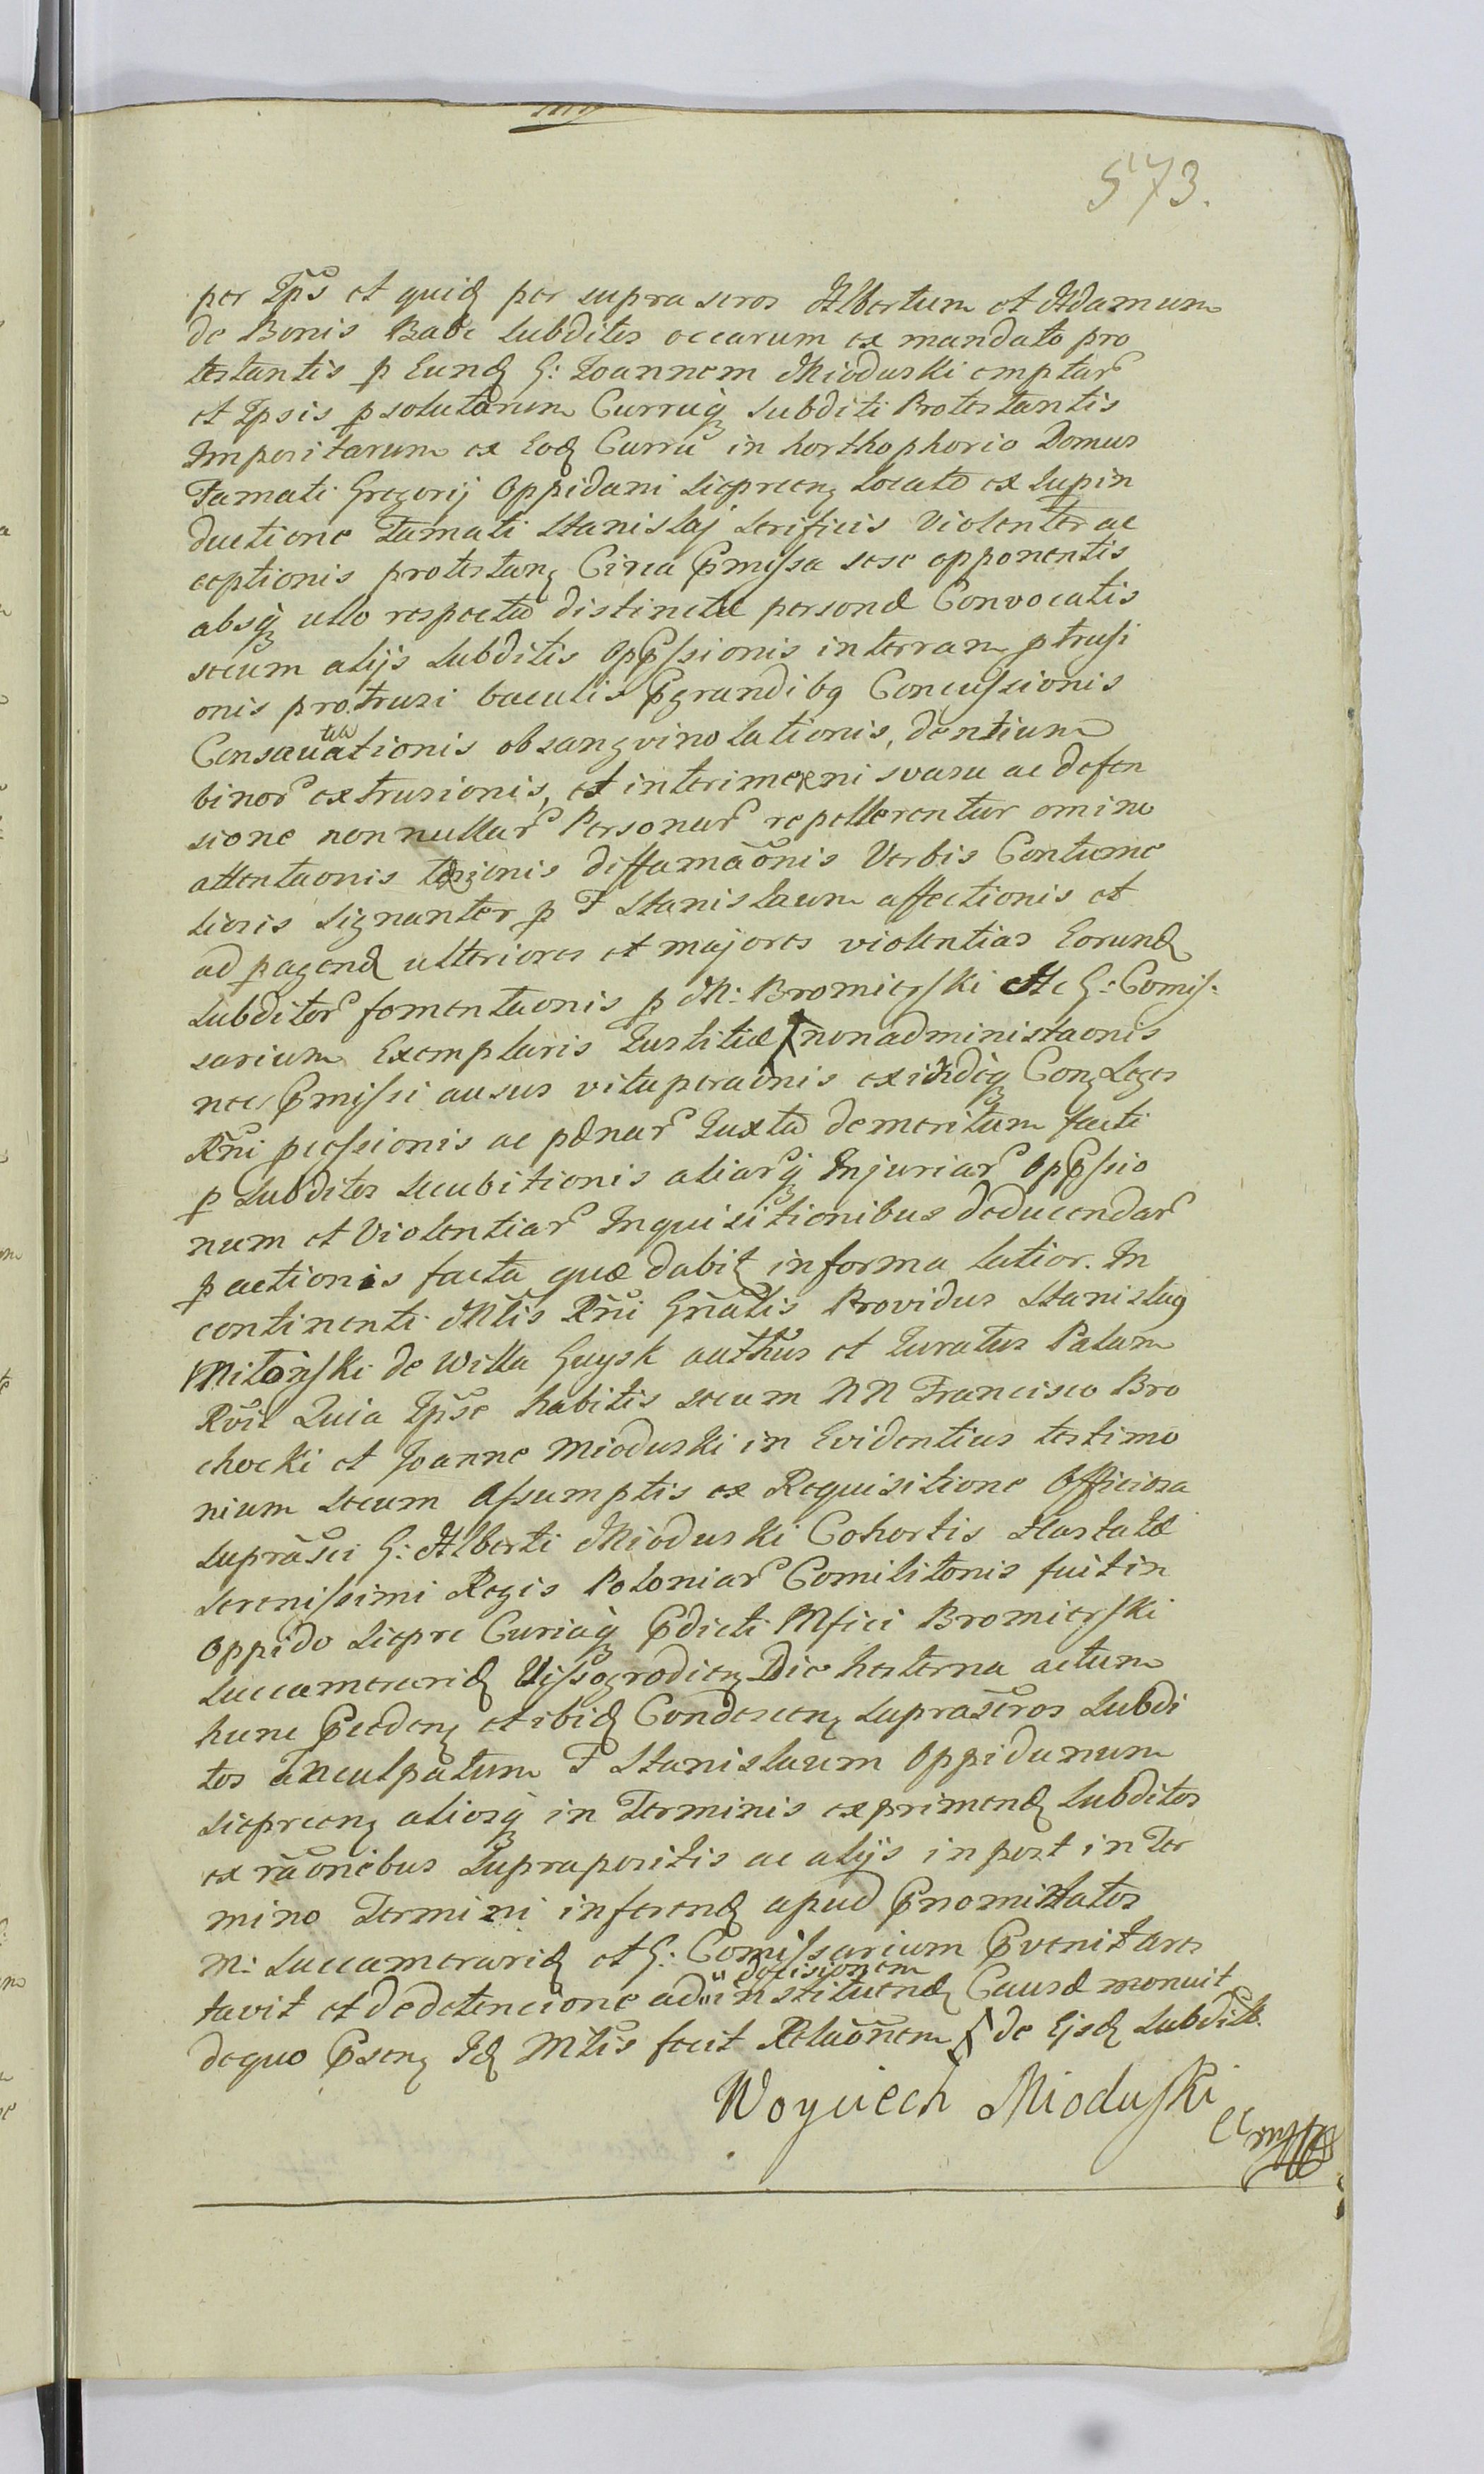 573.
per Ip̃s et quid per supra scros Albertum et Adamum
de Bonis Babe Subditos occarum ex mandato pro
testantis p Eund G: Joannem Mioduski emptar
et Ipsis psolutarum Curruiq Subditi Protestantis
Impositarum ex Eod Curru in horthophorio Domus
Famati Gregorij Oppidani Siepreen Locato ex Supin
ductione Famati Stanislaj Serificis Violenter ac
ceptionis protestan Circa Pmissa sese opponentis
absq ullo respectu distinctæ personæ Convocatis
secum alijs Subditis Oppssionis in terram ptrusi
onis protrusi baculis Pgrandibq Concussionis
Consauciationis obsangvinolationis, dentium
binor extrusionis, et interimerni svasu ac defen
sione nonnullar Personar repellerentur omino
attentaonis diffamãonis Verbis Contume
liosis Signanter p F Stanislaum affectionis et
ad pagend ulteriores et majores violentias Eorund
Subditor fomentaonis p M: Bromierski Ac G: Comis:
sarium Exemplaris Justitiæ nonadministaonis
nec Pmissi ausus vituperaonis exindeq Con Leges
Rñi pcessionis ac pænar Juxta demeritum facti
p Subditos Sucubitionis aliarq Injuriar Oppssio
num et Violentiar Inquisitionibus deducendar
p actionis facta quæ dabit in forma latior. In
continenti Mlis Rñi Gñalis Providus Stanislaq
Milonski de Willa Guysk authus et Juratus Palam
Rõit Quia Ipse habitis secum NN Francisco Bro
chocki et Joanne Mioduski in Evidentius testimo
nium secum Assumptis ex Requisitione Officiosa
suprasci G: Alberti Mioduski Cohortis Hastatæ
Serenissimi Regis Poloniar Comilitonis fuit in
Oppido Siepre Curiaq Pdicti Mfici Bromierski
Succamerarid Vissogrodien Die hesterna actum
hunc Pceden et ibid Condescen supraseros Subdi
tos Inculpatum F Stanislaum Oppidanum
Siepreen aliosq in Terminis exprimend Subditos
ex rãonibus Supra positis ac alijs in post in Ter
mino Termini inferend apud Pnominatos
M: Succamerarid et G: Comissarium Pvenit ares
tavit et de detencione ad decisionem instituend Causæ monuit
dequo Psen Id Mlis fecit Relaõnem de Ejsd Subdit.
Woyciech Mioduski